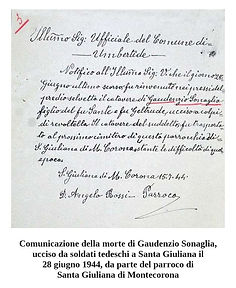 Ill.mo Sig. Ufficiale del Comune di
Umbertide
Notifico all'Ill.mo Sig. V. che il giorno 28
Giugno ultimo scorso fu rinvenuto nei pressi del
predio selvetto il catavere di Gaudenzio Sonaglia
figlio del fu Sante e fu Geltrude, ucciso a colpi
di revoltella. Il catavere del suddetto, fu trasporta
to al prossimo cimitero di questa parrocchia di
S. Giuliana di M. Corona stante le difficoltà di quel
epoca.
S. Giuliana di M. Corona 15.7.44
D. Angelo Rossi Parroco
Comunicazione della morte di Gaudenzio Sonaglia,
ucciso da soldati tedeschi a Santa Giuliana il
28 giugno 1944, da parte del parroco di
Santa Giuliana di Montecorona